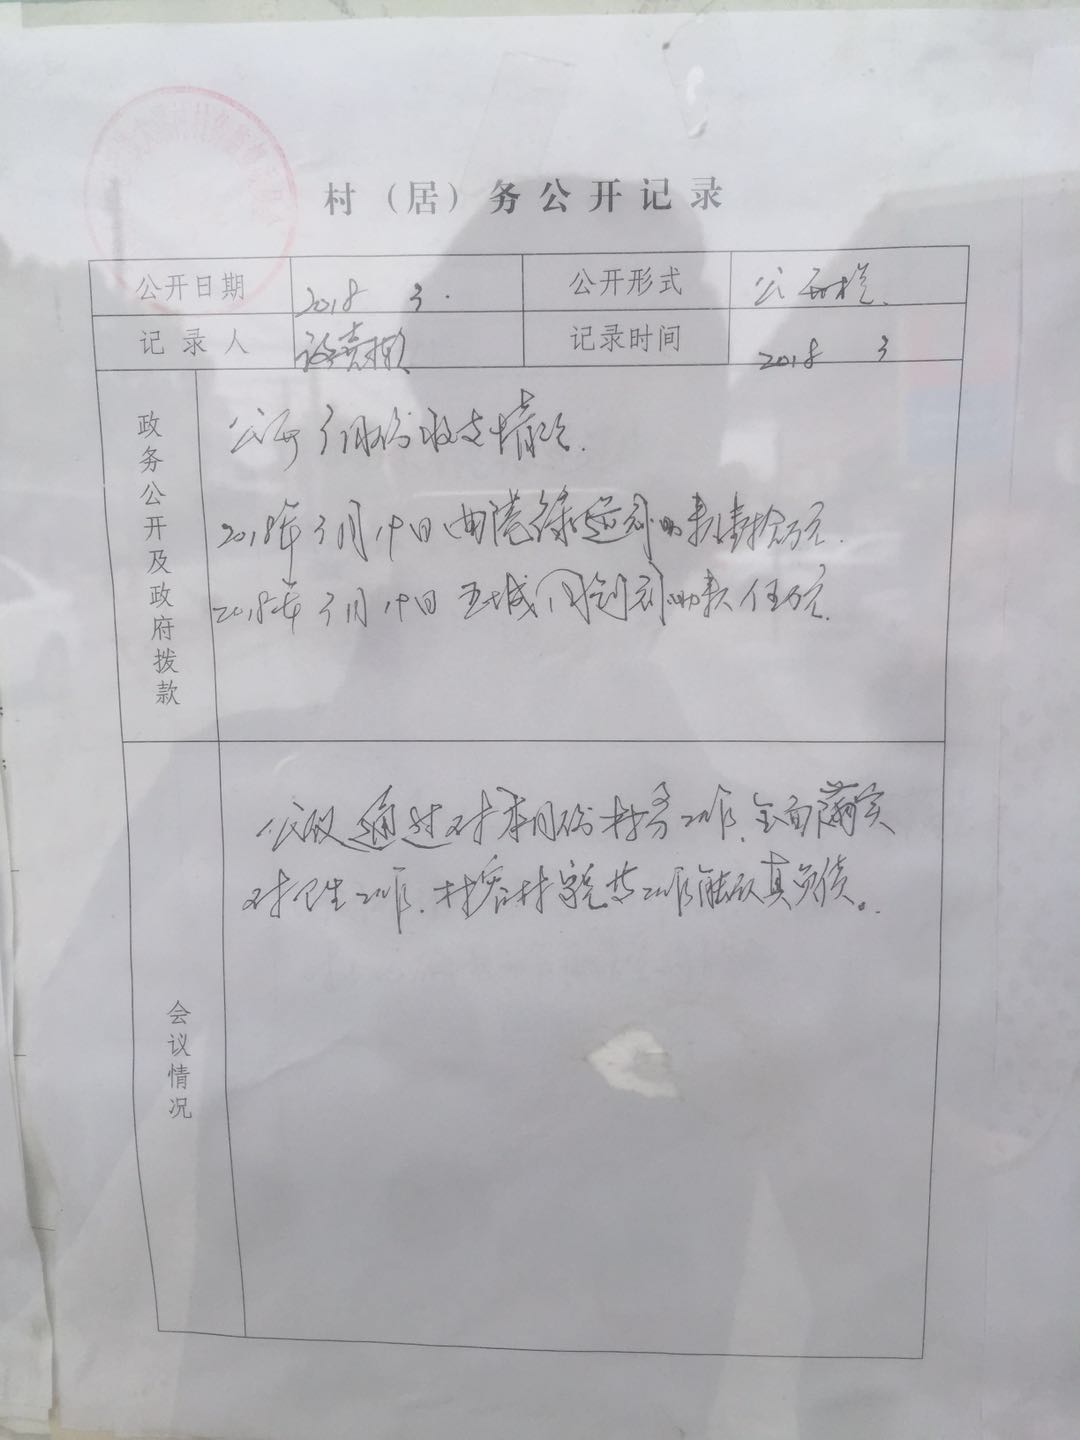 村（居）务公开记录
公开日期 2018 3. 公开形式 公开栏.
记录人 记录时间 2018 3
政务公开及政府拨款
公开3月份收支情况.
2018年3月19日 款壹拾万元.
2018年3月19日 款伍万元.
会议情况
会议通过对本月份村务工作.全面落实
对卫生工作.村容村貌等工作能认真负责。